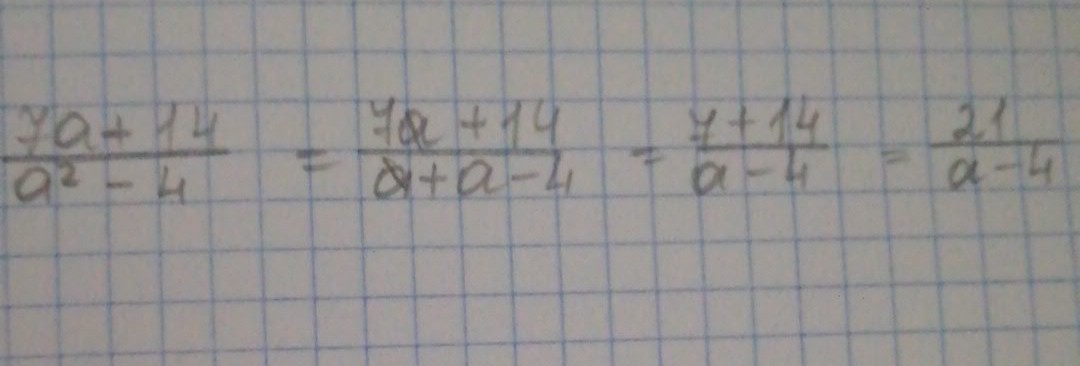 7a + 14 / a² - 4 = 7a + 14 / a + a - 4 = 7 + 14 / a - 4 = 21 / a - 4